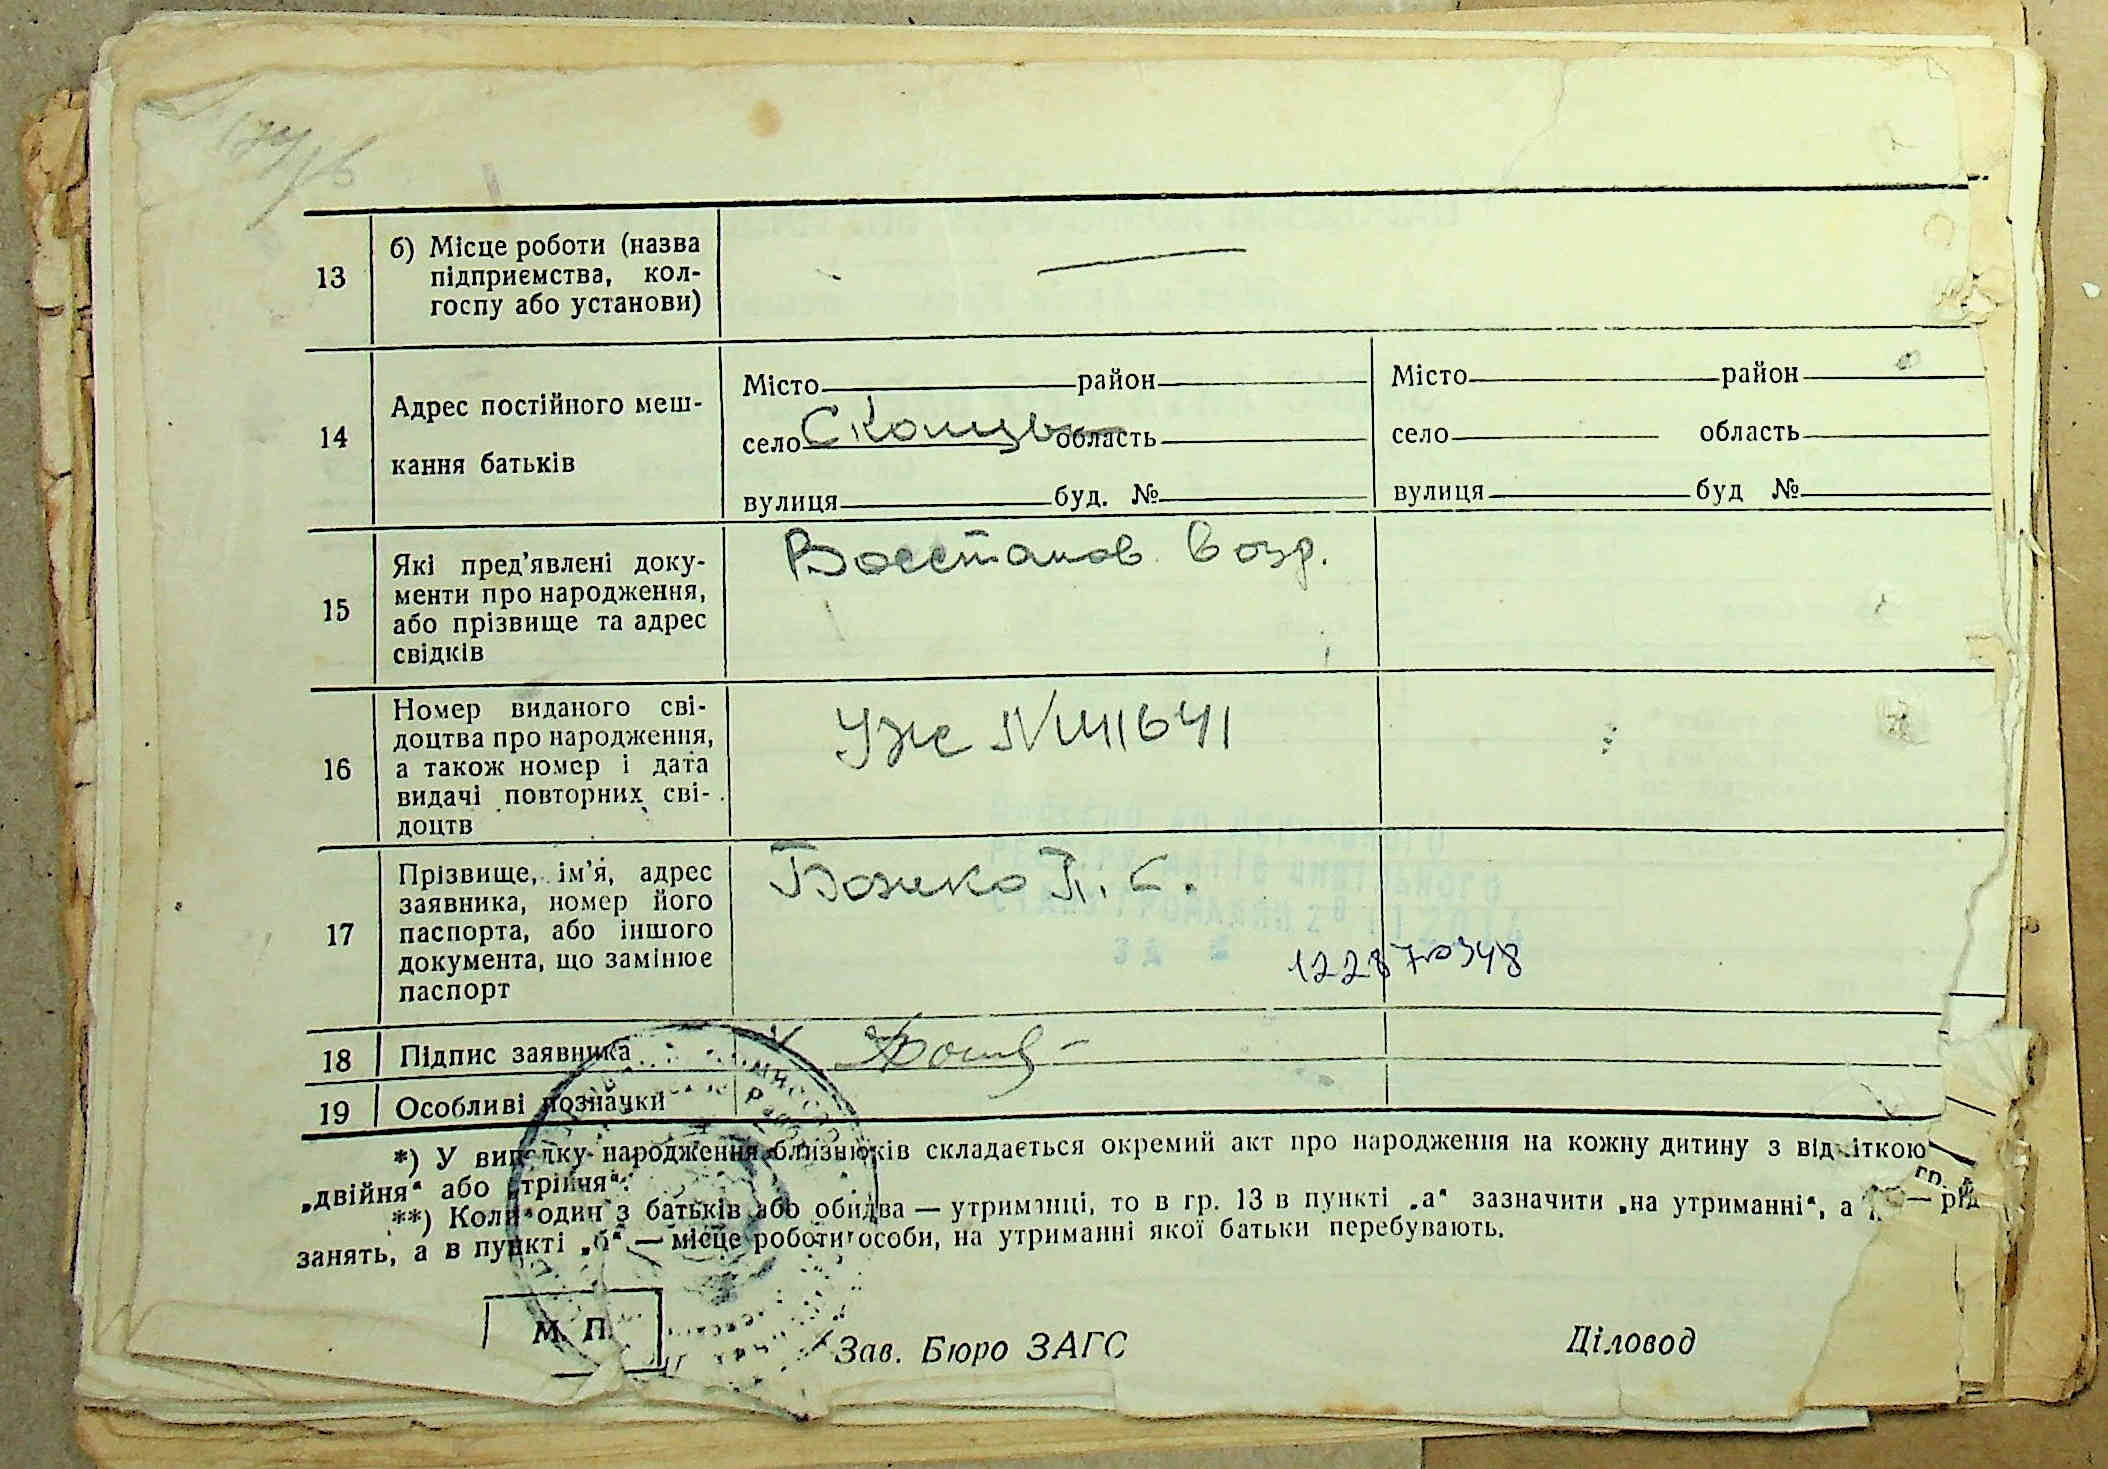 13
б) Місце роботи (назва
підприємства, кол-
госпу або установи)
14
Адрес постійного меш-
кання батьків
Місто район
село Скопцы область
вулиця буд. №
Місто район
село область
вулиця буд №
15
Які пред'явлені доку-
менти про народження,
або прізвище та адрес
свідків
Восстанов. возр.
16
Номер виданого сві-
доцтва про народження,
а також номер і дата
видачі повторних сві-
доцтв
17
Прізвище, ім'я, адрес
заявника, номер його
паспорта, або іншого
документа, що замінює
паспорт
Божко П. С.
державного
РЕЄСТРУ АКТІВ ЦИВІЛЬНОГО
СТАНУ ГРОМАДЯН 28 11 2014
18
Підпис заявника
19
Особливі позначки
*) У випадку народження близнюків складається окремий акт про народження на кожну дитину з відміткою
„двійня“ або „трійня“.
**) Коли один з батьків або обидва — утриманці, то в гр. 13 в пункті „а“ зазначити „на утриманні“, а гр. — рід
занять, а в пункті „б“ — місце роботи особи, на утриманні якої батьки перебувають.
М. П.
Зав. Бюро ЗАГС
Діловод